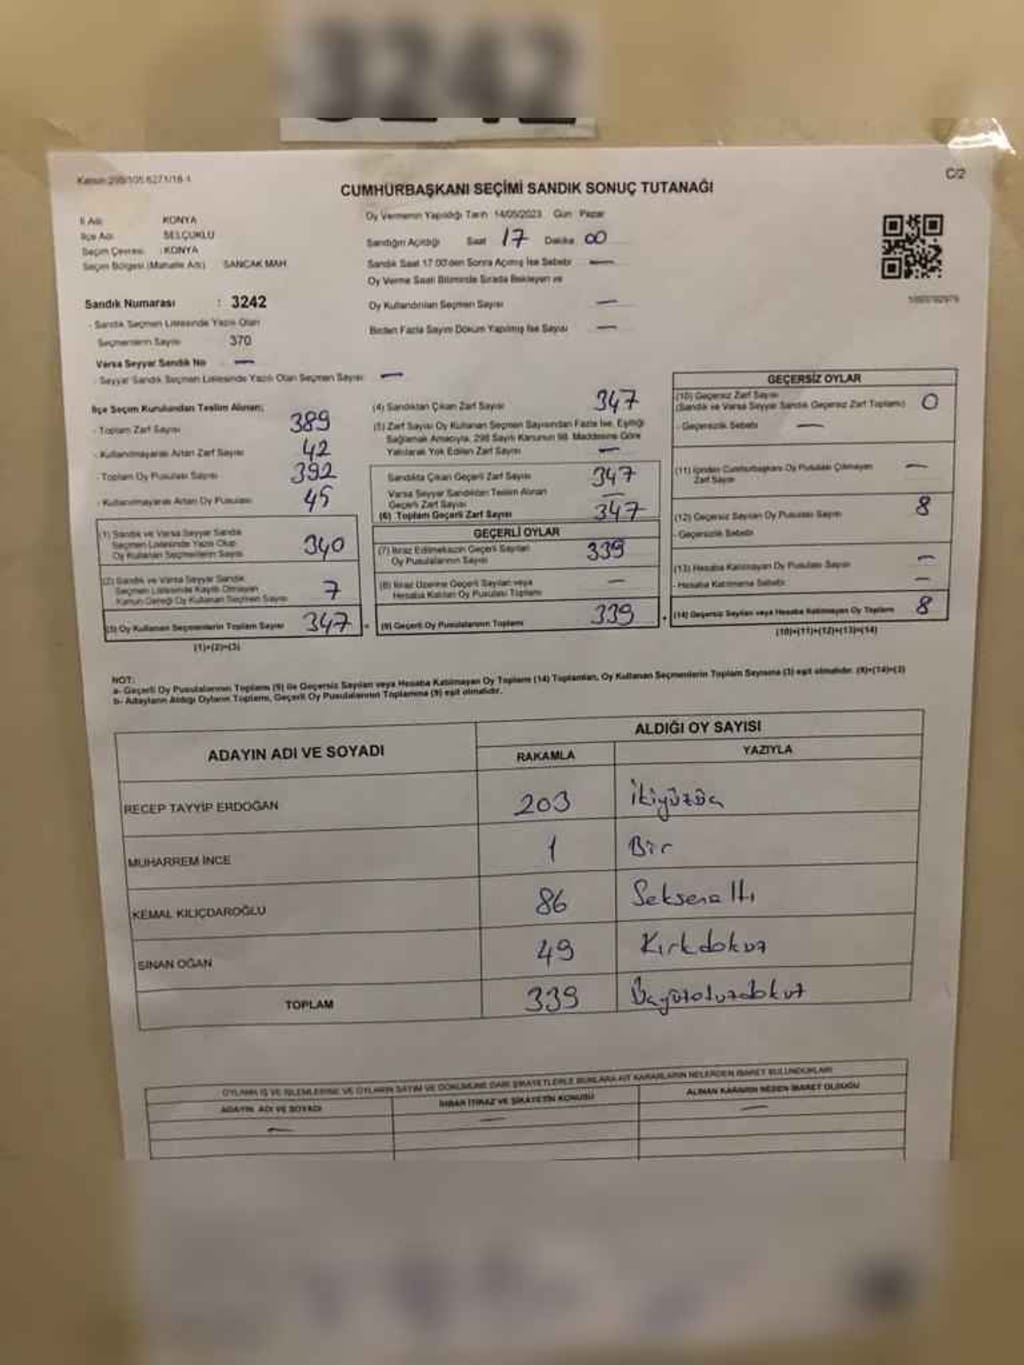 3242
Kanun:298/105 6271/18-1
C/2
CUMHURBAŞKANI SEÇİMİ SANDIK SONUÇ TUTANAĞI
İl Adı : KONYA
İlçe Adı : SELÇUKLU
Seçim Çevresi : KONYA
Seçim Bölgesi (Mahalle Adı) : SANCAK MAH.
Sandık Numarası : 3242
- Sandık Seçmen Listesinde Yazılı Olan
Seçmenlerin Sayısı 370
Varsa Seyyar Sandık No —
- Seyyar Sandık Seçmen Listesinde Yazılı Olan Seçmen Sayısı —
Oy Vermenin Yapıldığı Tarih 14/05/2023 Gün Pazar
Sandığın Açıldığı Saat 17 Dakika 00
Sandık Saat 17.00'den Sonra Açılmış İse Sebebi —
Oy Verme Saati Bitiminde Sırada Bekleyen ve
Oy Kullandırılan Seçmen Sayısı —
Birden Fazla Sayım Döküm Yapılmış İse Sayısı —
İlçe Seçim Kurulundan Teslim Alınan;
- Toplam Zarf Sayısı 389
- Kullanılmayarak Artan Zarf Sayısı 42
- Toplam Oy Pusulası Sayısı 392
- Kullanılmayarak Artan Oy Pusulası 45
(1) Sandık ve Varsa Seyyar Sandık
Seçmen Listesinde Yazılı Olup
Oy Kullanan Seçmenlerin Sayısı 340
(2) Sandık ve Varsa Seyyar Sandık
Seçmen Listesinde Kayıtlı Olmayan
Kanun Gereği Oy Kullanan Seçmen Sayısı 7
(3) Oy Kullanan Seçmenlerin Toplam Sayısı 347 =
(1)+(2)=(3)
(4) Sandıktan Çıkan Zarf Sayısı 347
(5) Zarf Sayısı Oy Kullanan Seçmen Sayısından Fazla İse, Eşitliği
Sağlamak Amacıyla, 298 Sayılı Kanunun 98. Maddesine Göre
Yakılarak Yok Edilen Zarf Sayısı —
Sandıkta Çıkan Geçerli Zarf Sayısı 347
Varsa Seyyar Sandıktan Teslim Alınan
Geçerli Zarf Sayısı —
(6) Toplam Geçerli Zarf Sayısı 347
GEÇERLİ OYLAR
(7) İtiraz Edilmeksizin Geçerli Sayılan
Oy Pusulalarının Sayısı 339
(8) İtiraz Üzerine Geçerli Sayılan veya
Hesaba Katılan Oy Pusulası Toplamı —
(9) Geçerli Oy Pusulalarının Toplamı 339 +
GEÇERSİZ OYLAR
(10) Geçersiz Zarf Sayısı
(Sandık ve Varsa Seyyar Sandık Geçersiz Zarf Toplamı) 0
- Geçersizlik Sebebi —
(11) İçinden Cumhurbaşkanı Oy Pusulası Çıkmayan
Zarf Sayısı —
(12) Geçersiz Sayılan Oy Pusulası Sayısı 8
- Geçersizlik Sebebi
(13) Hesaba Katılmayan Oy Pusulası Sayısı —
- Hesaba Katılmama Sebebi —
(14) Geçersiz Sayılan veya Hesaba Katılmayan Oy Toplamı 8
(10)+(11)+(12)+(13)=(14)
NOT:
a- Geçerli Oy Pusulalarının Toplamı (9) ile Geçersiz Sayılan veya Hesaba Katılmayan Oy Toplamı (14) Toplamları, Oy Kullanan Seçmenlerin Toplam Sayısına (3) eşit olmalıdır. (9)+(14)=(3)
b- Adayların Aldığı Oyların Toplamı, Geçerli Oy Pusulalarının Toplamına (9) eşit olmalıdır.
ADAYIN ADI VE SOYADI ALDIĞI OY SAYISI
RAKAMLA YAZIYLA
RECEP TAYYİP ERDOĞAN 203 İkiyüzüç
MUHARREM İNCE 1 Bir
KEMAL KILIÇDAROĞLU 86 Seksenaltı
SİNAN OĞAN 49 Kırkdokuz
TOPLAM 339 Üçyüzotuzdokuz
OYLAMA İŞ VE İŞLEMLERİNE VE OYLARIN SAYIM VE DÖKÜMÜNE DAİR ŞİKAYETLERLE BUNLARA AİT KARARLARIN NELERDEN İBARET BULUNDUKLARI
ADAYIN ADI VE SOYADI İHBAR İTİRAZ VE ŞİKAYETİN KONUSU ALINAN KARARIN NEDEN İBARET OLDUĞU
— — —